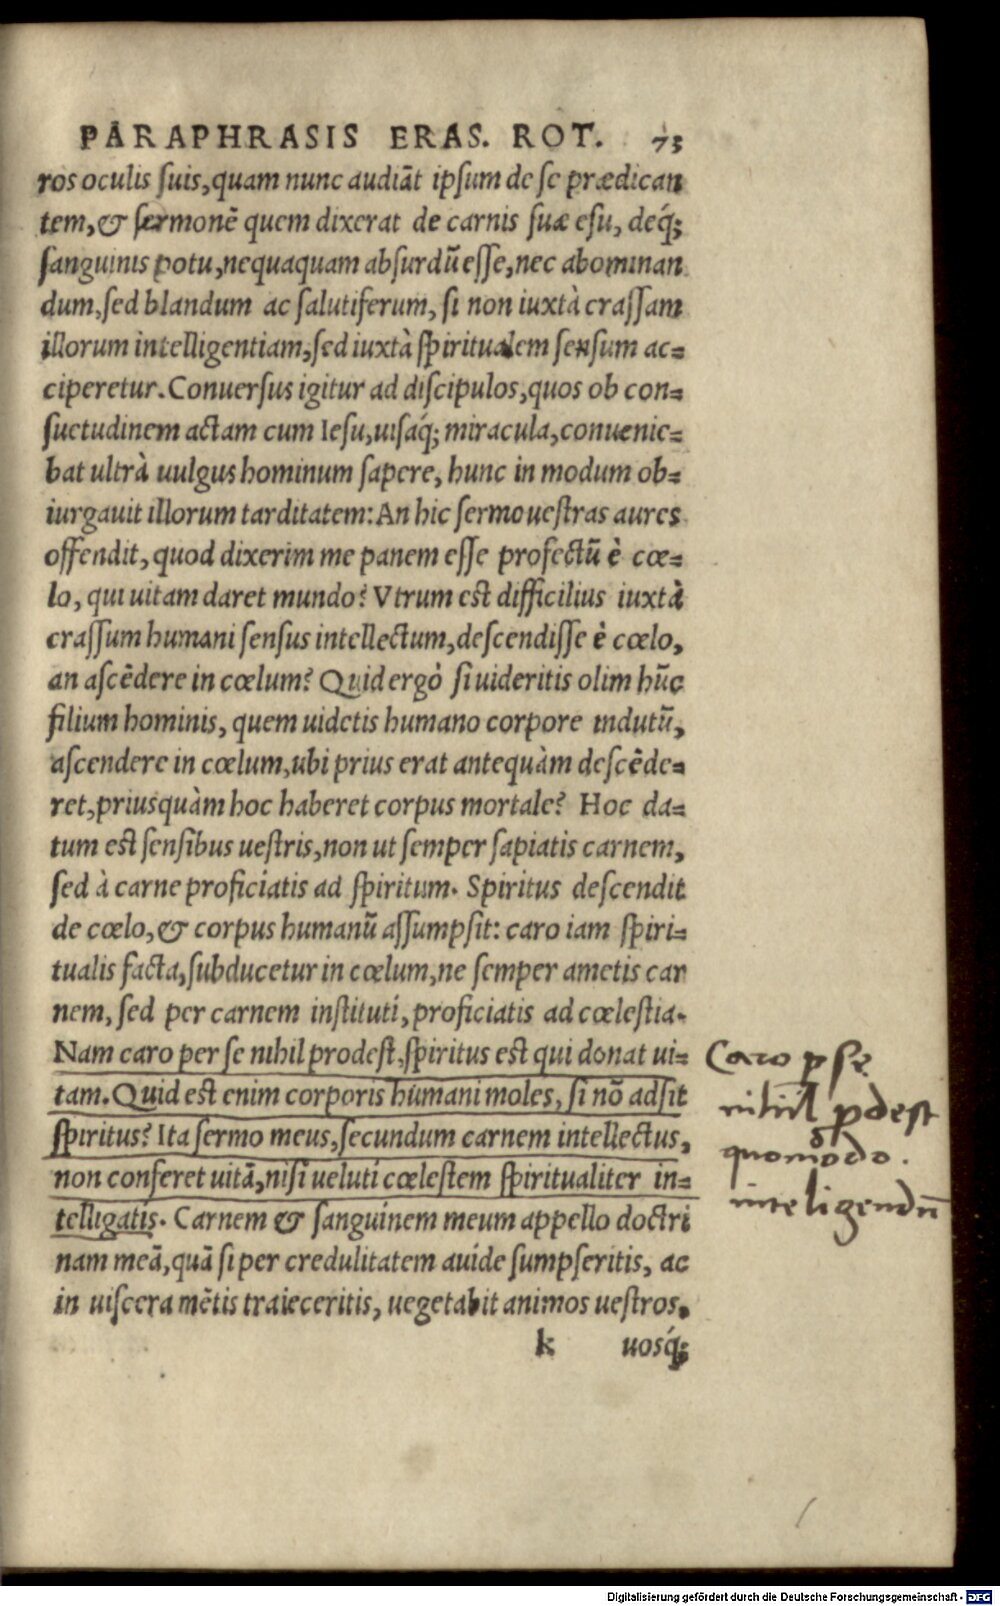 PARAPHRASIS ERAS. ROT. 73
ros oculis suis, quam nunc audiāt ipsum de se prædican
tem, & sermonē quem dixerat de carnis suæ esu, deq́;
sanguinis potu, nequaquam absurdū esse, nec abominan
dum, sed blandum ac salutiferum, si non iuxtà crassam
illorum intelligentiam, sed iuxtà spiritualem sensum ac=
ciperetur. Conuersus igitur ad discipulos, quos ob con=
suetudinem actam cum Iesu, uisaq́; miracula, conuenie=
bat ultrà uulgus hominum sapere, hunc in modum ob=
iurgauit illorum tarditatem: An hic sermo uestras aures
offendit, quod dixerim me panem esse profectū è cœ=
lo, qui uitam daret mundo? Vtrum est difficilius iuxtà
crassum humani sensus intellectum, descendisse è cœlo,
an ascēdere in cœlum? Quid ergò si uideritis olim hūc
filium hominis, quem uidetis humano corpore indutū,
ascendere in cœlum, ubi prius erat antequàm descēde=
ret, priusquàm hoc haberet corpus mortale? Hoc da=
tum est sensibus uestris, non ut semper sapiatis carnem,
sed à carne proficiatis ad spiritum. Spiritus descendit
de cœlo, & corpus humanū assumpsit: caro iam spiri=
tualis facta, subducetur in cœlum, ne semper ametis car
nem, sed per carnem instituti, proficiatis ad cœlestia.
Nam caro per se nihil prodest, spiritus est qui donat ui=
tam. Quid est enim corporis humani moles, si nō adsit
spiritus? Ita sermo meus, secundum carnem intellectus,
non conferet uitā, nisi ueluti cœlestem spiritualiter in=
telligatis. Carnem & sanguinem meum appello doctri
nam meā, quā si per credulitatem auide sumpseritis, ac
in uiscera mētis traieceritis, uegetabit animos uestros,
k uosq́;
Caro p se
nihil pdest
quomodo.
inteligendū
Digitalisierung gefördert durch die Deutsche Forschungsgemeinschaft - DFG